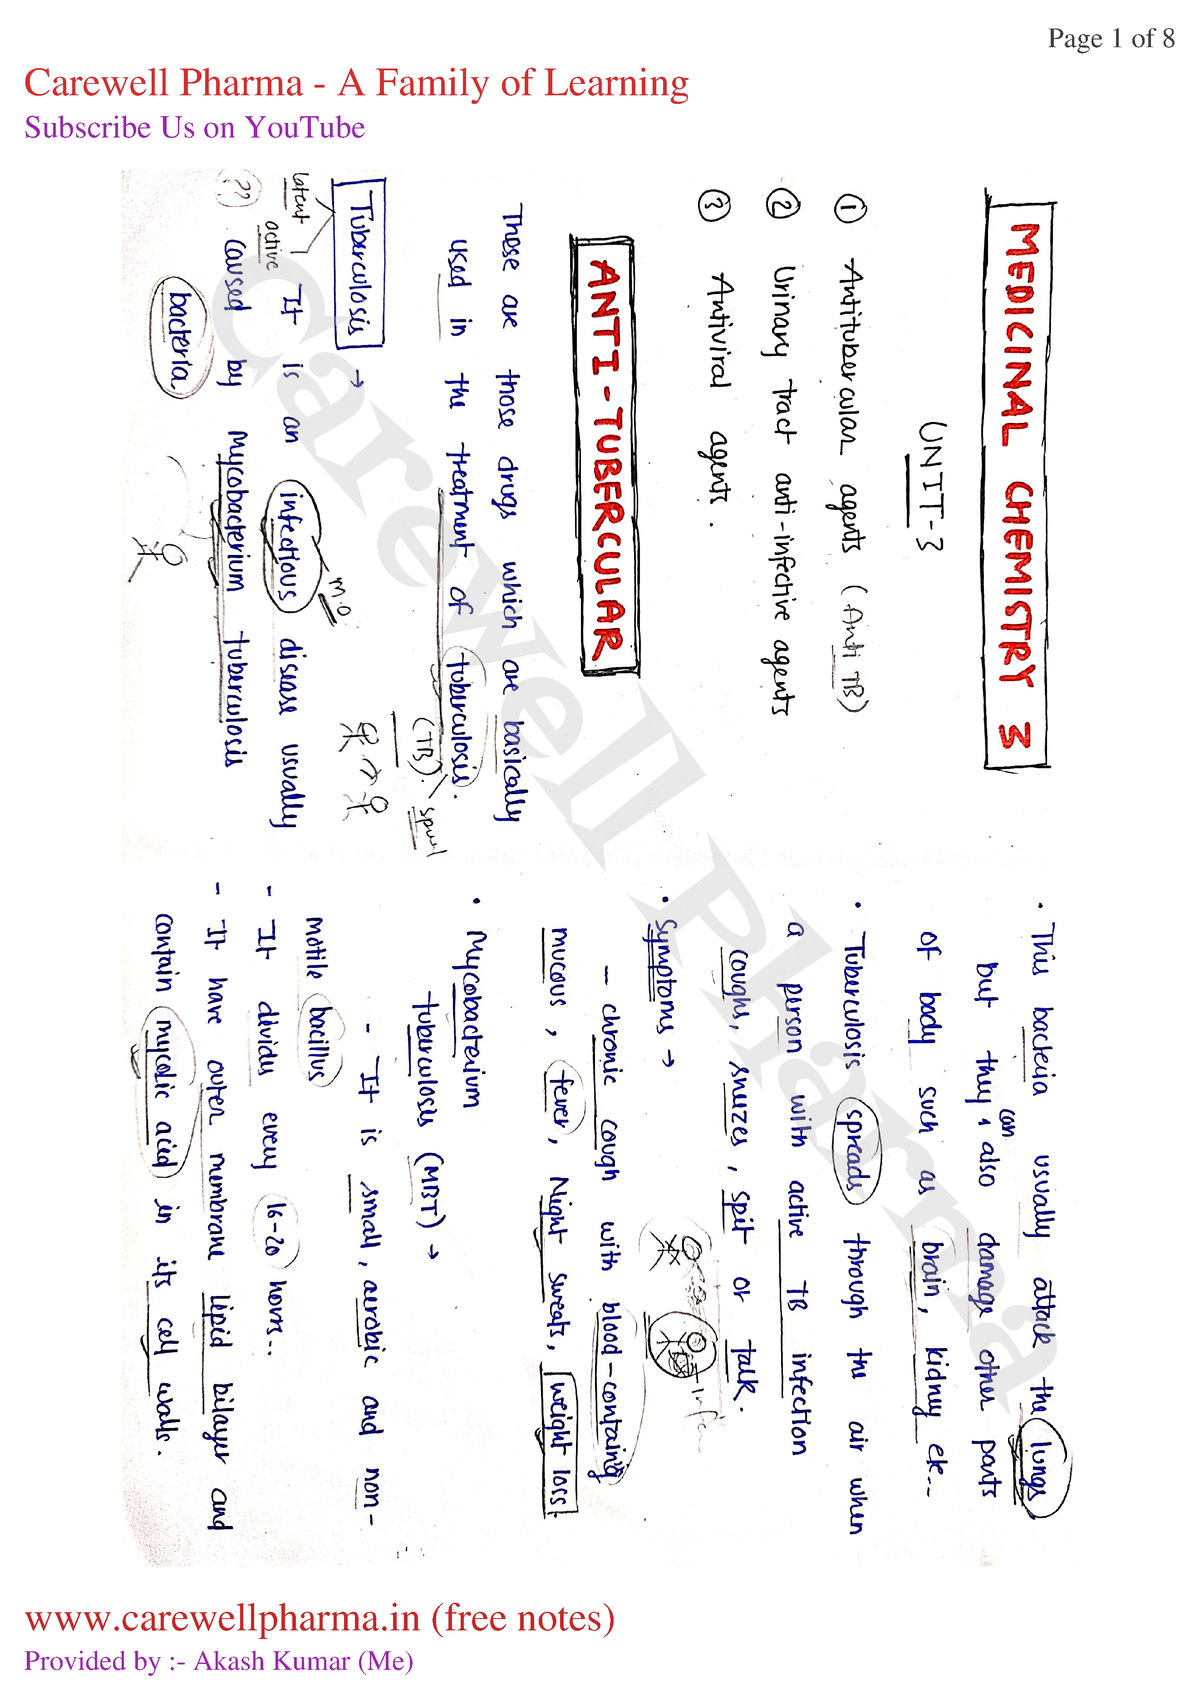 Page 1 of 8
Carewell Pharma - A Family of Learning
Subscribe Us on YouTube
MEDICINAL CHEMISTRY 3
UNIT-3
① Antitubercular agents (Anti TB)
② Urinary tract anti-infective agents
③ Antiviral agents.
ANTI-TUBERCULAR
These are those drugs which are basically
used in the treatment of tuberculosis.
(TB)
Tuberculosis →
latent
active
It is an infectious disease usually
m.o
?? caused by Mycobacterium tuberculosis
bacteria
• This bacteria usually attack the lungs,
but they can also damage other parts
of body such as brain, kidney etc...
• Tuberculosis spreads through the air when
a person with active TB infection
coughs, snuzes, spit or talk.
• Symptoms →
- chronic cough with blood-containg
mucous, fever, Night sweats, weight loss.
• Mycobacterium
tuberculosis (MBT) →
- It is small, aerobic and non-
motile bacillus
- It divides every 16-20 hours...
- It have outer membrane lipid bilayer and
contain mycolic acid in its cell walls.
Carewell Pharma
www.carewellpharma.in (free notes)
Provided by :- Akash Kumar (Me)